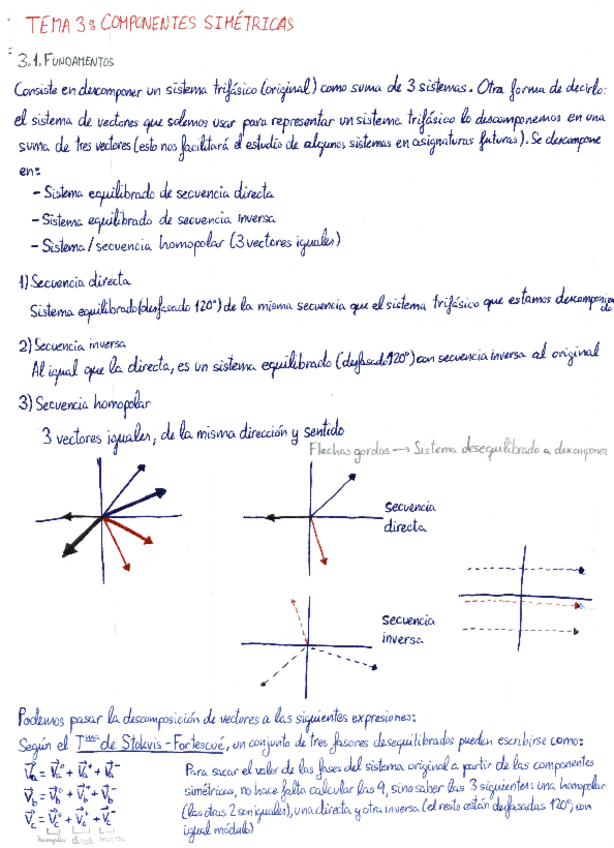 TEMA 3: COMPONENTES SIMÉTRICAS
3.1. FUNDAMENTOS
Consiste en descomponer un sistema trifásico (original) como suma de 3 sistemas. Otra forma de decirlo:
el sistema de vectores que solemos usar para representar un sistema trifásico lo descomponemos en una
suma de tres vectores (esto nos facilitará el estudio de algunos sistemas en asignaturas futuras). Se descompone
en:
- Sistema equilibrado de secuencia directa
- Sistema equilibrado de secuencia inversa
- Sistema/secuencia homopolar (3 vectores iguales)
1) Secuencia directa
Sistema equilibrado (desfasado 120°) de la misma secuencia que el sistema trifásico que estamos descomponiendo
2) Secuencia inversa
Al igual que la directa, es un sistema equilibrado (desfasado 120°) con secuencia inversa al original
3) Secuencia homopolar
3 vectores iguales, de la misma dirección y sentido
Flechas gordas → Sistema desequilibrado a descomponer
secuencia
directa
secuencia
inversa
Podemos pasar la descomposición de vectores a las siguientes expresiones:
Según el Tma de Stokvis-Fortescue, un conjunto de tres fasores desequilibrados pueden escribirse como:
V⃗a = V⃗a⁰ + V⃗a⁺ + V⃗a⁻
V⃗b = V⃗b⁰ + V⃗b⁺ + V⃗b⁻
V⃗c = V⃗c⁰ + V⃗c⁺ + V⃗c⁻
homopolar directa inversa
Para sacar el valor de las fases del sistema original a partir de las componentes
simétricas, no hace falta calcular las 9, sino saber las 3 siguientes: una homopolar
(las otras 2 son iguales), una directa y otra inversa (el resto están desfasadas 120°, con
igual módulo)